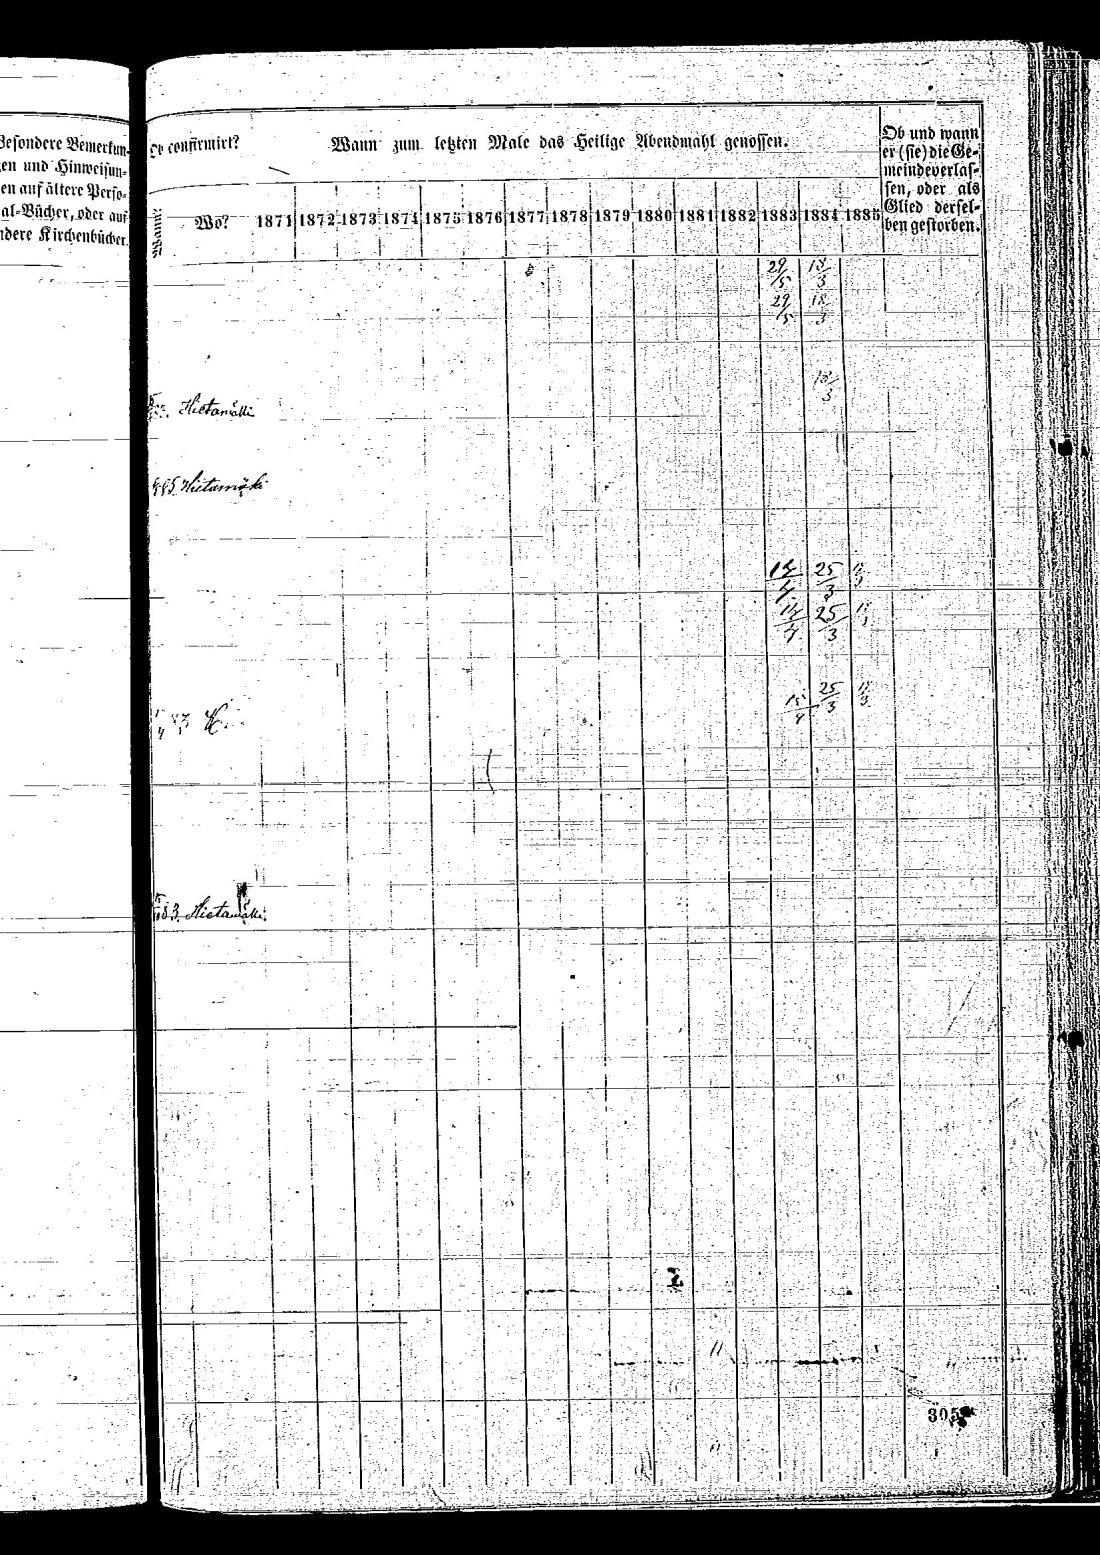 Besondere Bemerkun-
gen und Hinweisun-
en auf ältere Perso-
al-Bücher, oder auf
ndere Kirchenbücher.
Ob confirmirt?
Wann zum letzten Male das Heilige Abendmahl genossen.
Ob und wann
er (sie) die Ge-
meinde verlas-
sen, oder als
Glied dersel-
ben gestorben.
Wann?
Wo? 1871 1872 1873 1874 1875 1876 1877 1878 1879 1880 1881 1882 1883 1884 1885
29/5 18/3
29/5 18/3
18/3
Hietamäki
Hietamäki
25/3
25/3
25/3
83. Hietamäki.
305